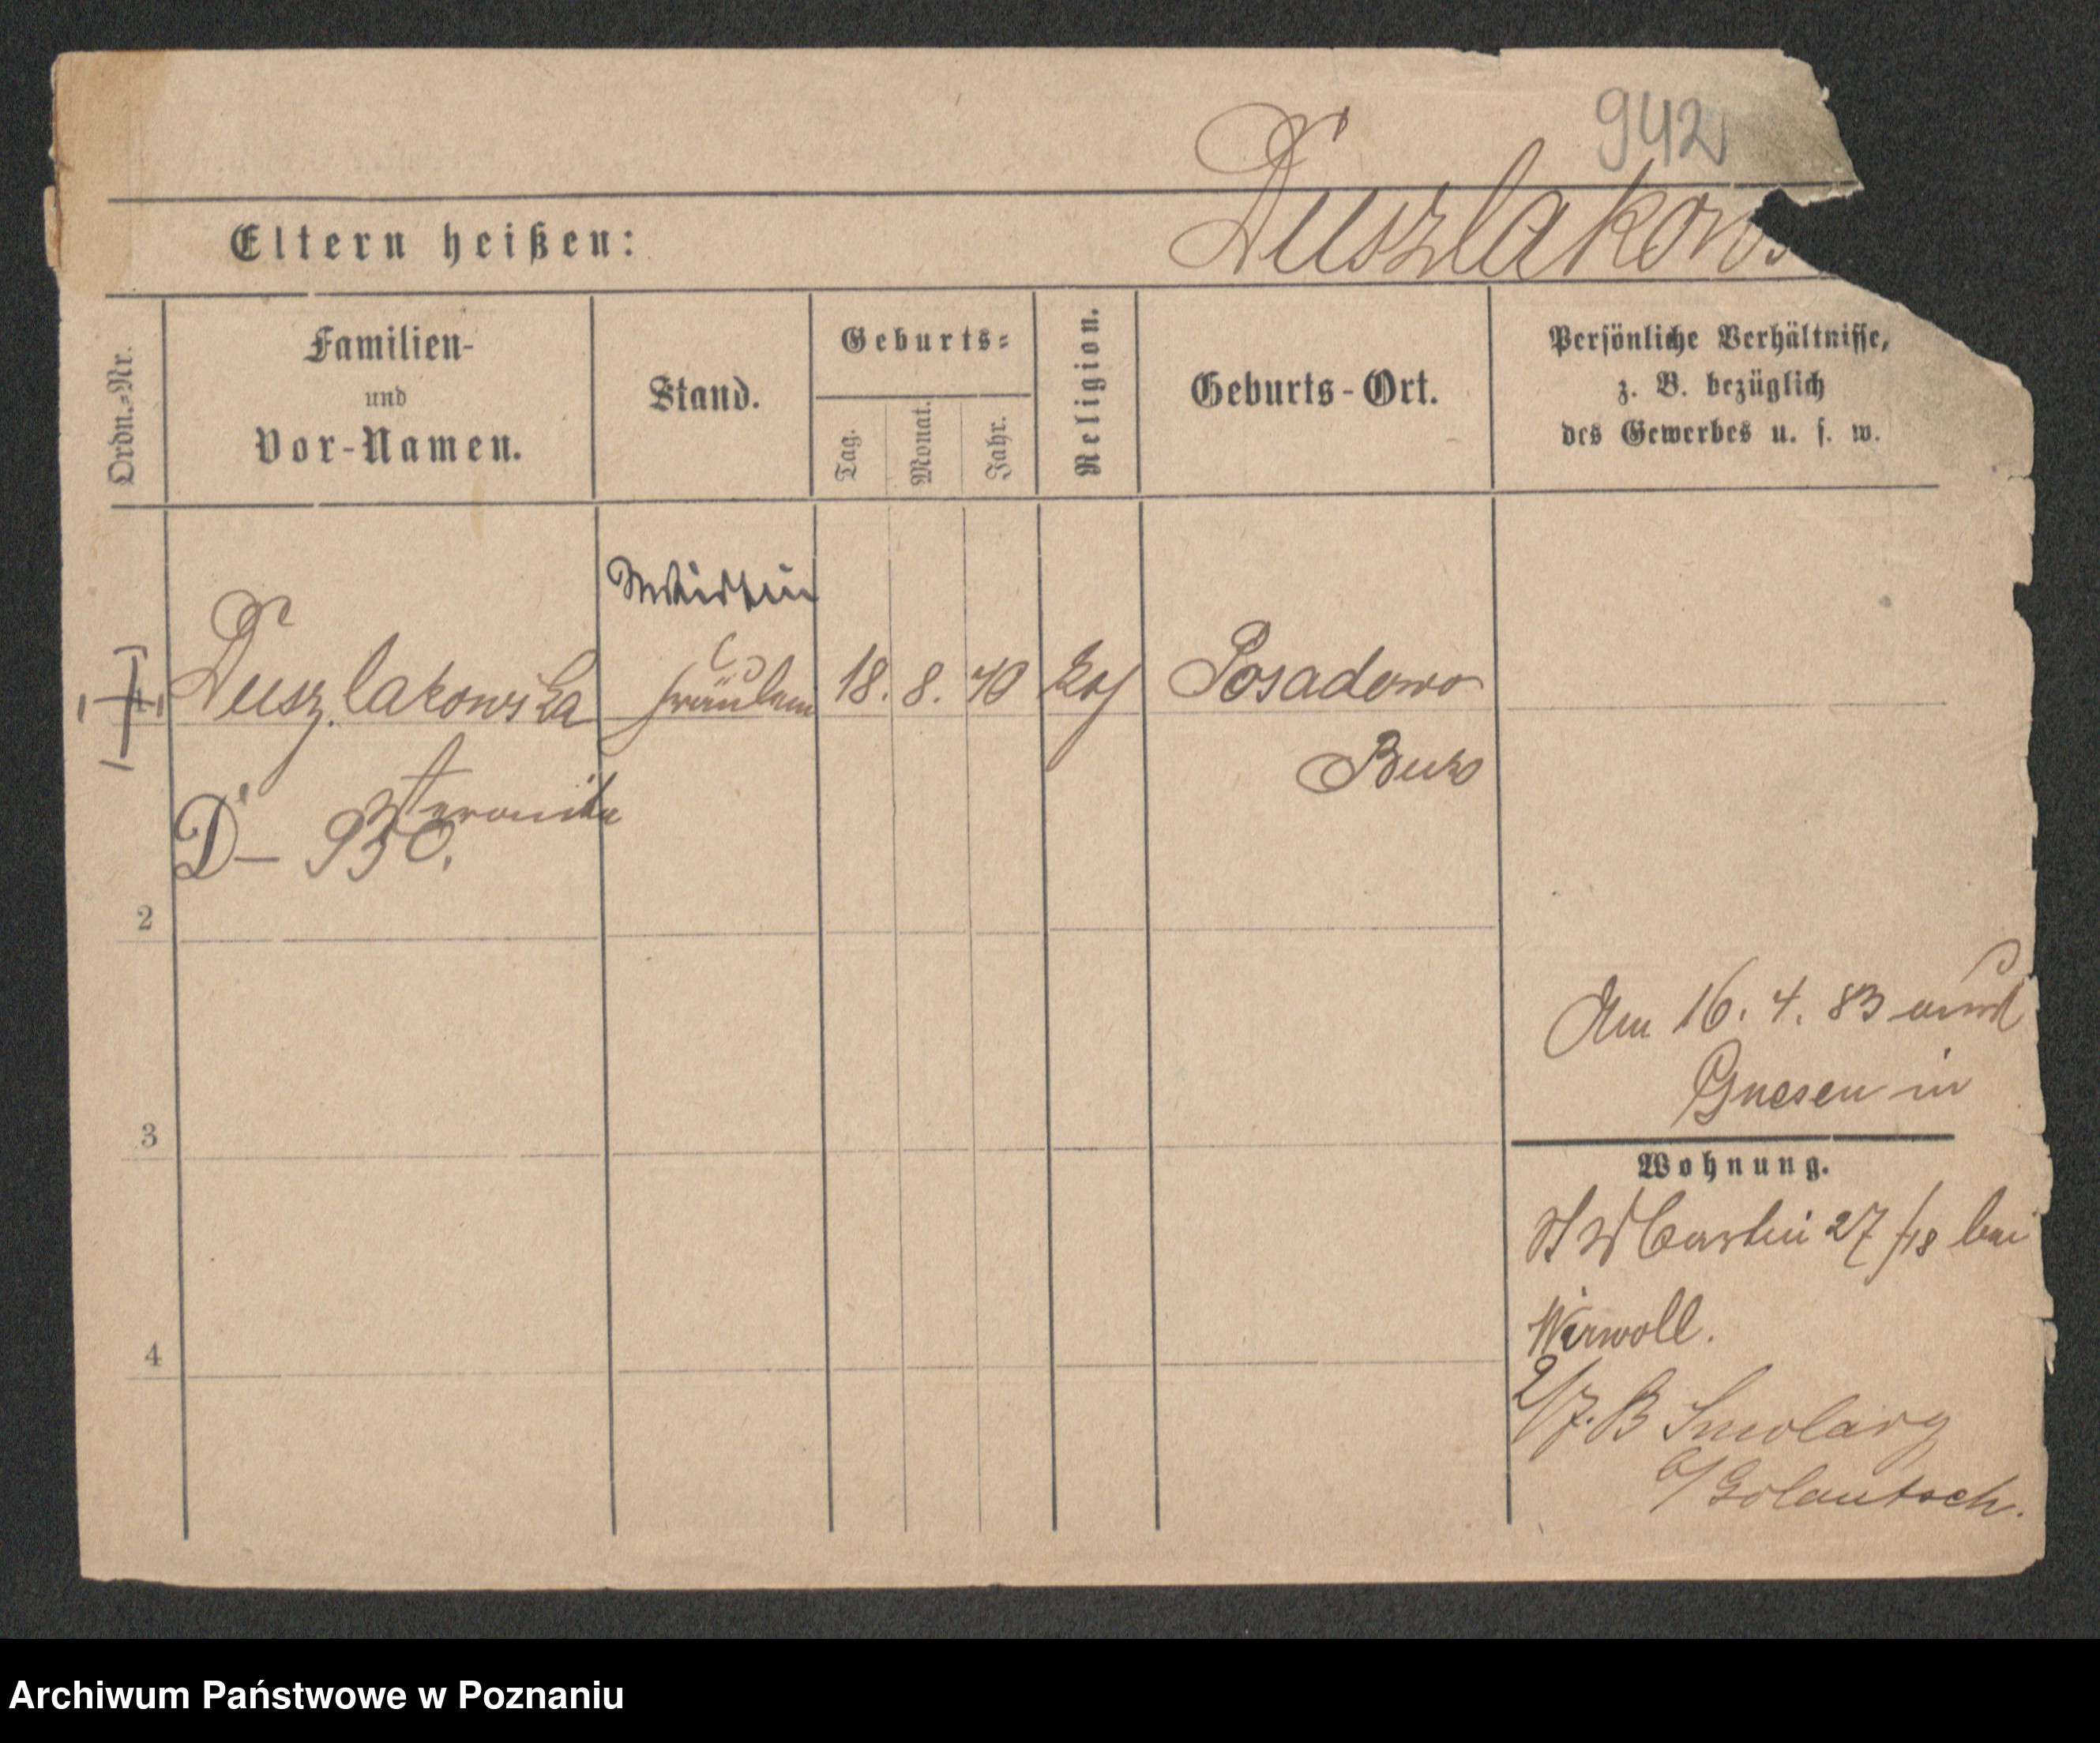 942
Duszlakows
Eltern heißen:
Ordn.-Nr.
Familien-
und
Vor-Namen.
Stand.
Geburts-
Tag.
Monat.
Jahr.
Religion.
Geburts-Ort.
Persönliche Verhältnisse,
z. B. bezüglich
des Gewerbes u. s. w.
Wirthin
1 Duszlakowska Fräulein 18. 8. 40 kath Posadowo
Buk
Veronika
D - 930.
2
Am 16. 4. 83 aus
Gnesen in
3
Wohnung.
St Martin 27 /18 bei
Werwoll.
4
2/7. B Smolary
b/ Golantsch.
Archiwum Państwowe w Poznaniu